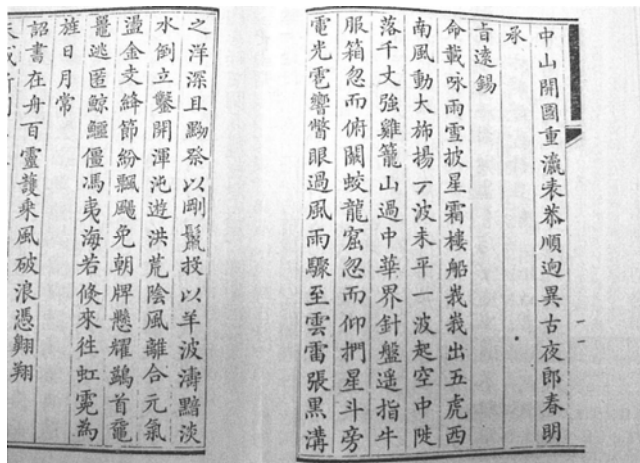 中山開國重瀛表恭順逈異古夜郎春明
承
㫖遠錫
命載咏雨雪披星霜樓船峩峩出五虎西
南風動大斾揚丁波未平一波起空中陡
落千丈強雞籠山過中華界針盤遥指牛
服箱忽而俯闞蛟龍窟忽而仰捫星斗旁
電光雹響瞥眼過風雨驟至雲雷張黑溝
之洋深且黝祭以剛鬣投以羊波濤黯淡
水倒立鑿開渾沌遊洪荒陰風離合元氣
盪金支絳節紛飄颺免朝牌懸耀鷁首黿
鼉逃匿鯨鱷僵馮夷海若倐來徃虹霓為
旌日月常
詔書在舟百靈護乗風破浪憑翺翔